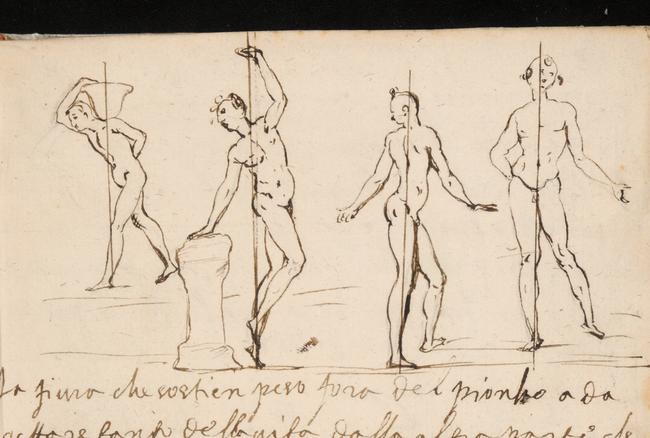 la fiura che sostien peso fora del piombo a da
gettare tanto della vita dalla altra parte che